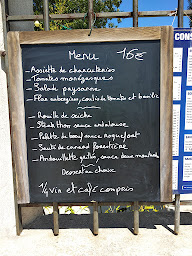 Menu 16€
- Assiette de charcuteries
- Tomates monégasques
- Salade paysanne
- Flan aubergines, coulis de tomates et basilic
- Rouille de seiche
- Steak thon sauce andalouse
- Palette de bœuf sauce roquefort
- Sauté de canard forestière
- Andouillette grillée, sauce deux moutardes
Dessert au choix
1/4 vin et café compris
CONS